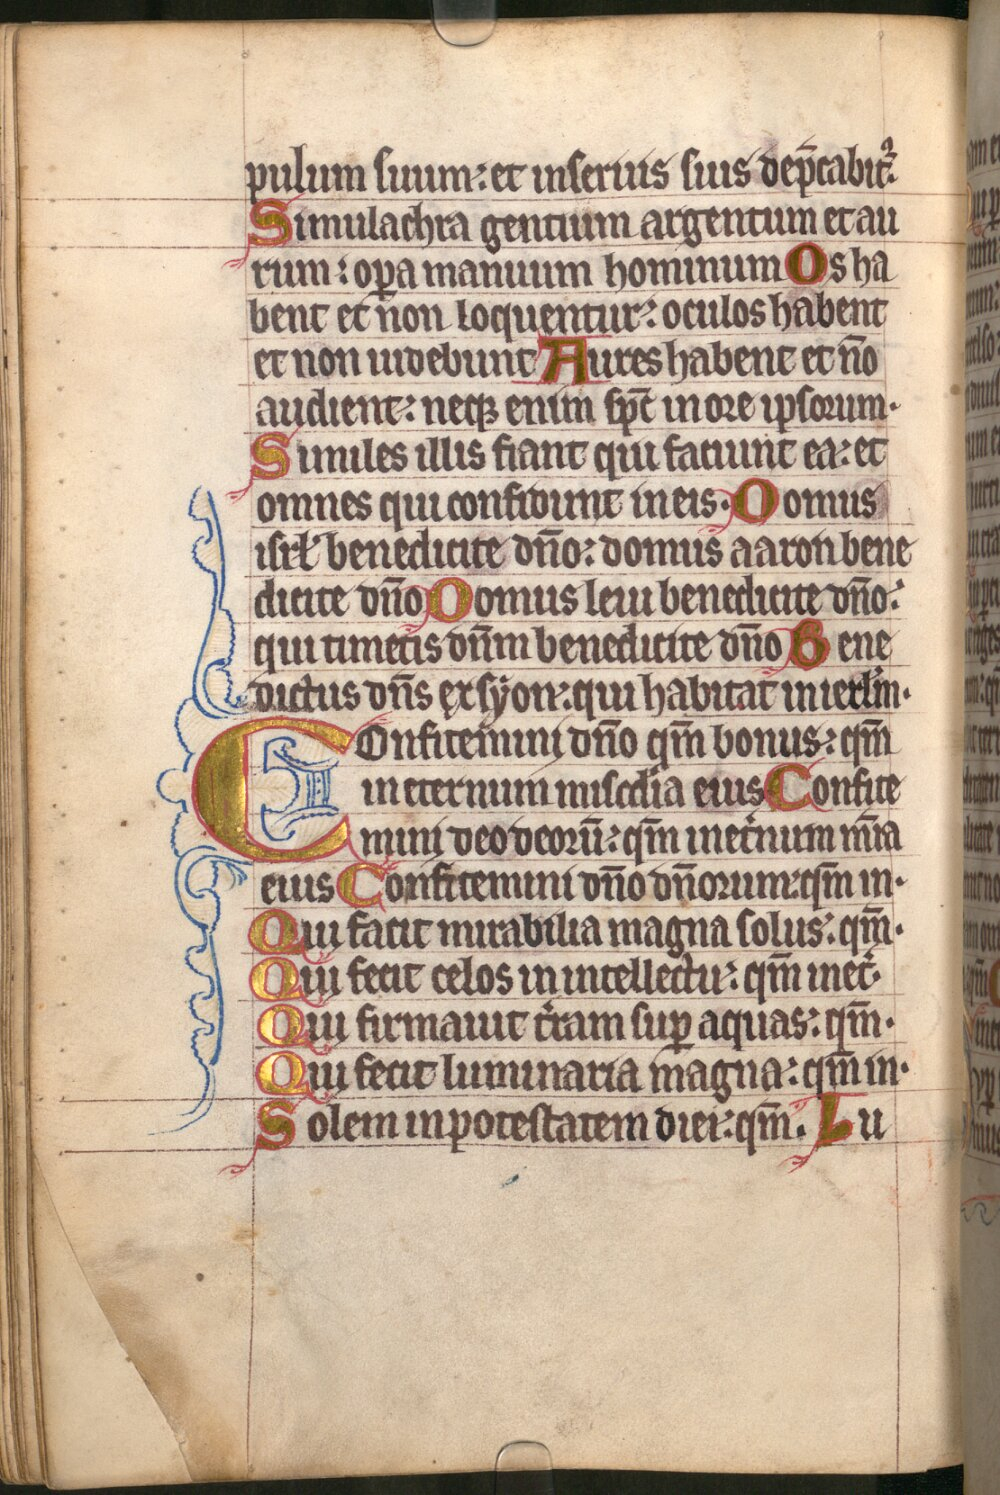 pulum suum: et in seruis suis dep̄cabit᷑.
Simulachra gentium argentum et au
rum: oꝑa manuum hominum Os ha
bent et non loquentur: oculos habent
et non uidebunt Aures habent et no̅
audient: neqꝫ enim sp̅c in ore ipsorum.
Similes illis fiant qui faciunt ea: et
omnes qui confidunt in eis. Domus
isrl̅ benedicite dn̅o: domus aaron bene
dicite dn̅o Domus leui benedicite dn̅o:
qui timetis dn̅m benedicite dn̅o Bene
dictus dn̅s ex syon: qui habitat in ierl̅m.
Confitemini dn̅o qm̅ bonus: qm̅
in eternum mis̅c̅dia eius Confite
mini deo deoru̅: qm̅ in et̾num m̅ia
eius Confitemini dn̅o dn̅orum: qm̅ in.
Qui facit mirabilia magna solus: qm̅.
Qui fecit celos in intellectu: qm̅ in et̾.
Qui firmauit t̾ram suꝑ aquas: qm̅.
Qui fecit luminaria magna: qm̅ in.
Solem in potestatem diei: qm̅. Lu